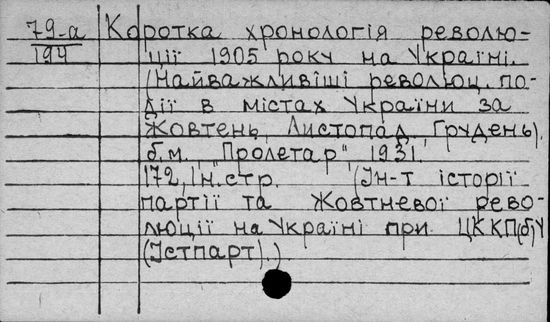 79-а Коротка хронологія револю-
194 ції 1905 року на Україні.
(Найважливіші революц. по-
дії в містах України за
Жовтень, Листопад, Грудень).
б.м. "Пролетар" 1931,
172, Ін. стр. (Ін-т історії
партії та Жовтневої рево-
люції на Україні при ЦК КП(б)У
(Істпарт).)